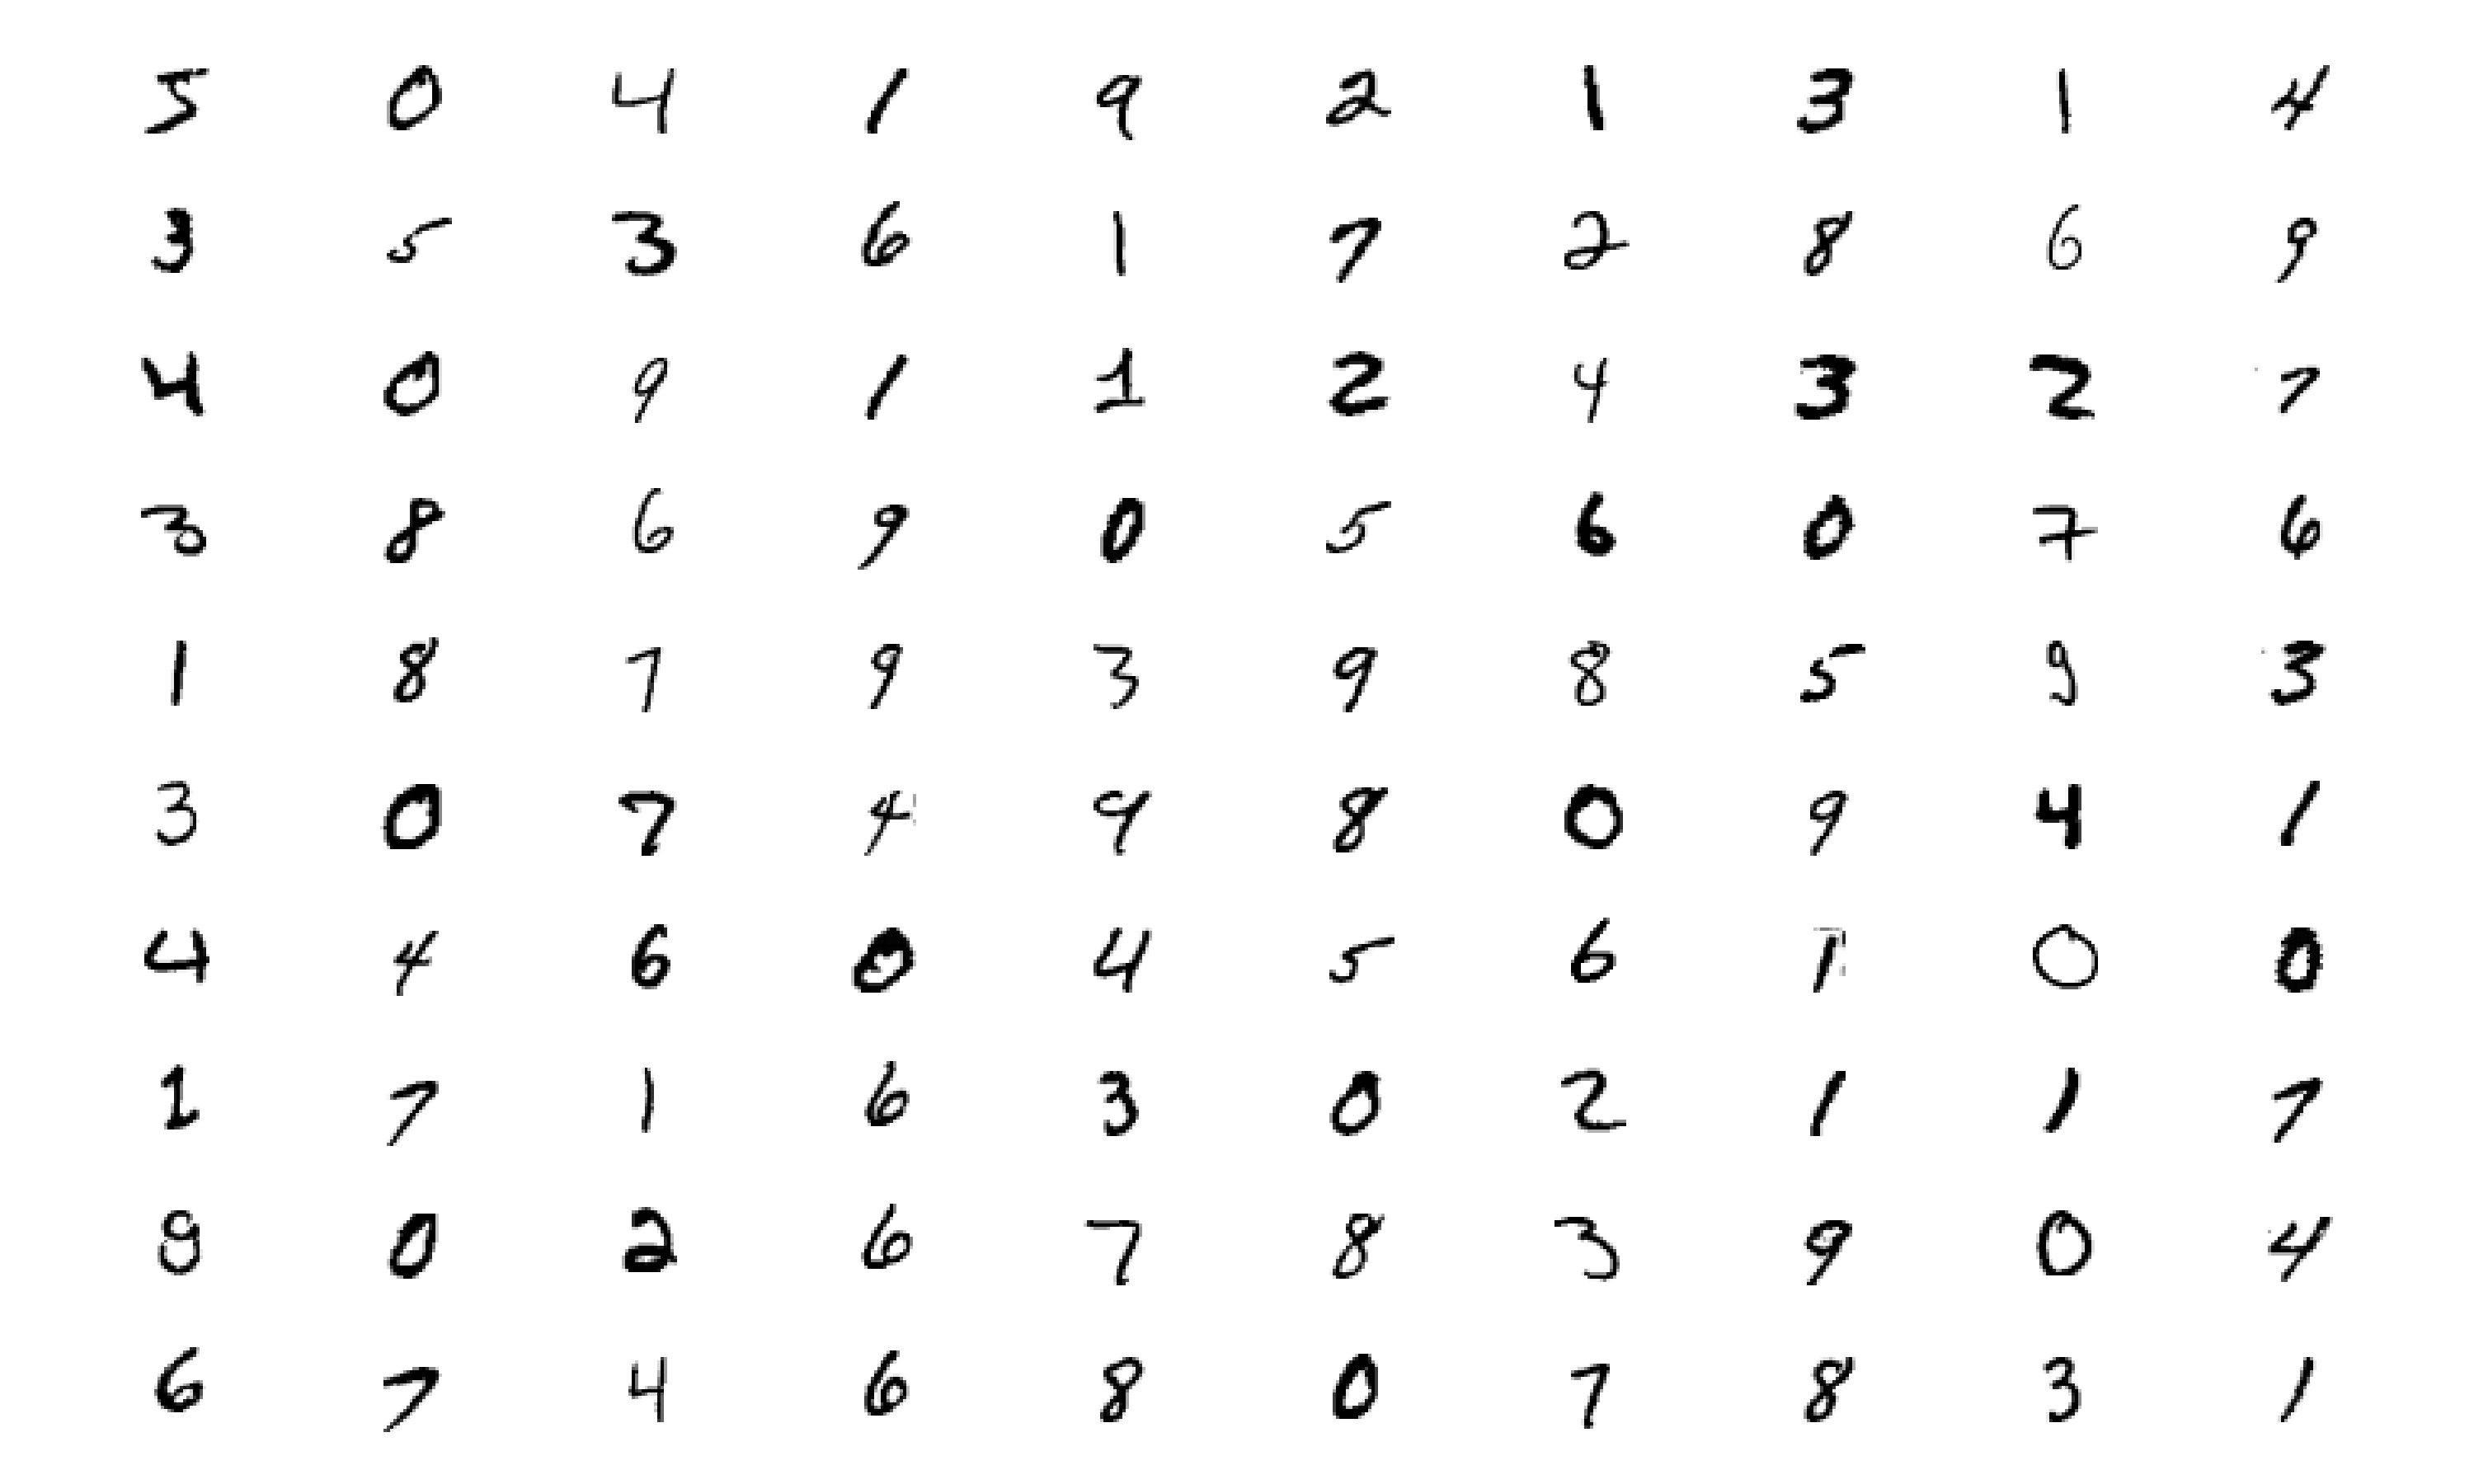 5 0 4 1 9 2 1 3 1 4
3 5 3 6 1 7 2 8 6 9
4 0 9 1 1 2 4 3 2 7
3 8 6 9 0 5 6 0 7 6
1 8 7 9 3 9 8 5 9 3
3 0 7 4 9 8 0 9 4 1
4 4 6 0 4 5 6 1 0 0
1 7 1 6 3 0 2 1 1 7
9 0 2 6 7 8 3 9 0 4
6 7 4 6 8 0 7 8 3 1